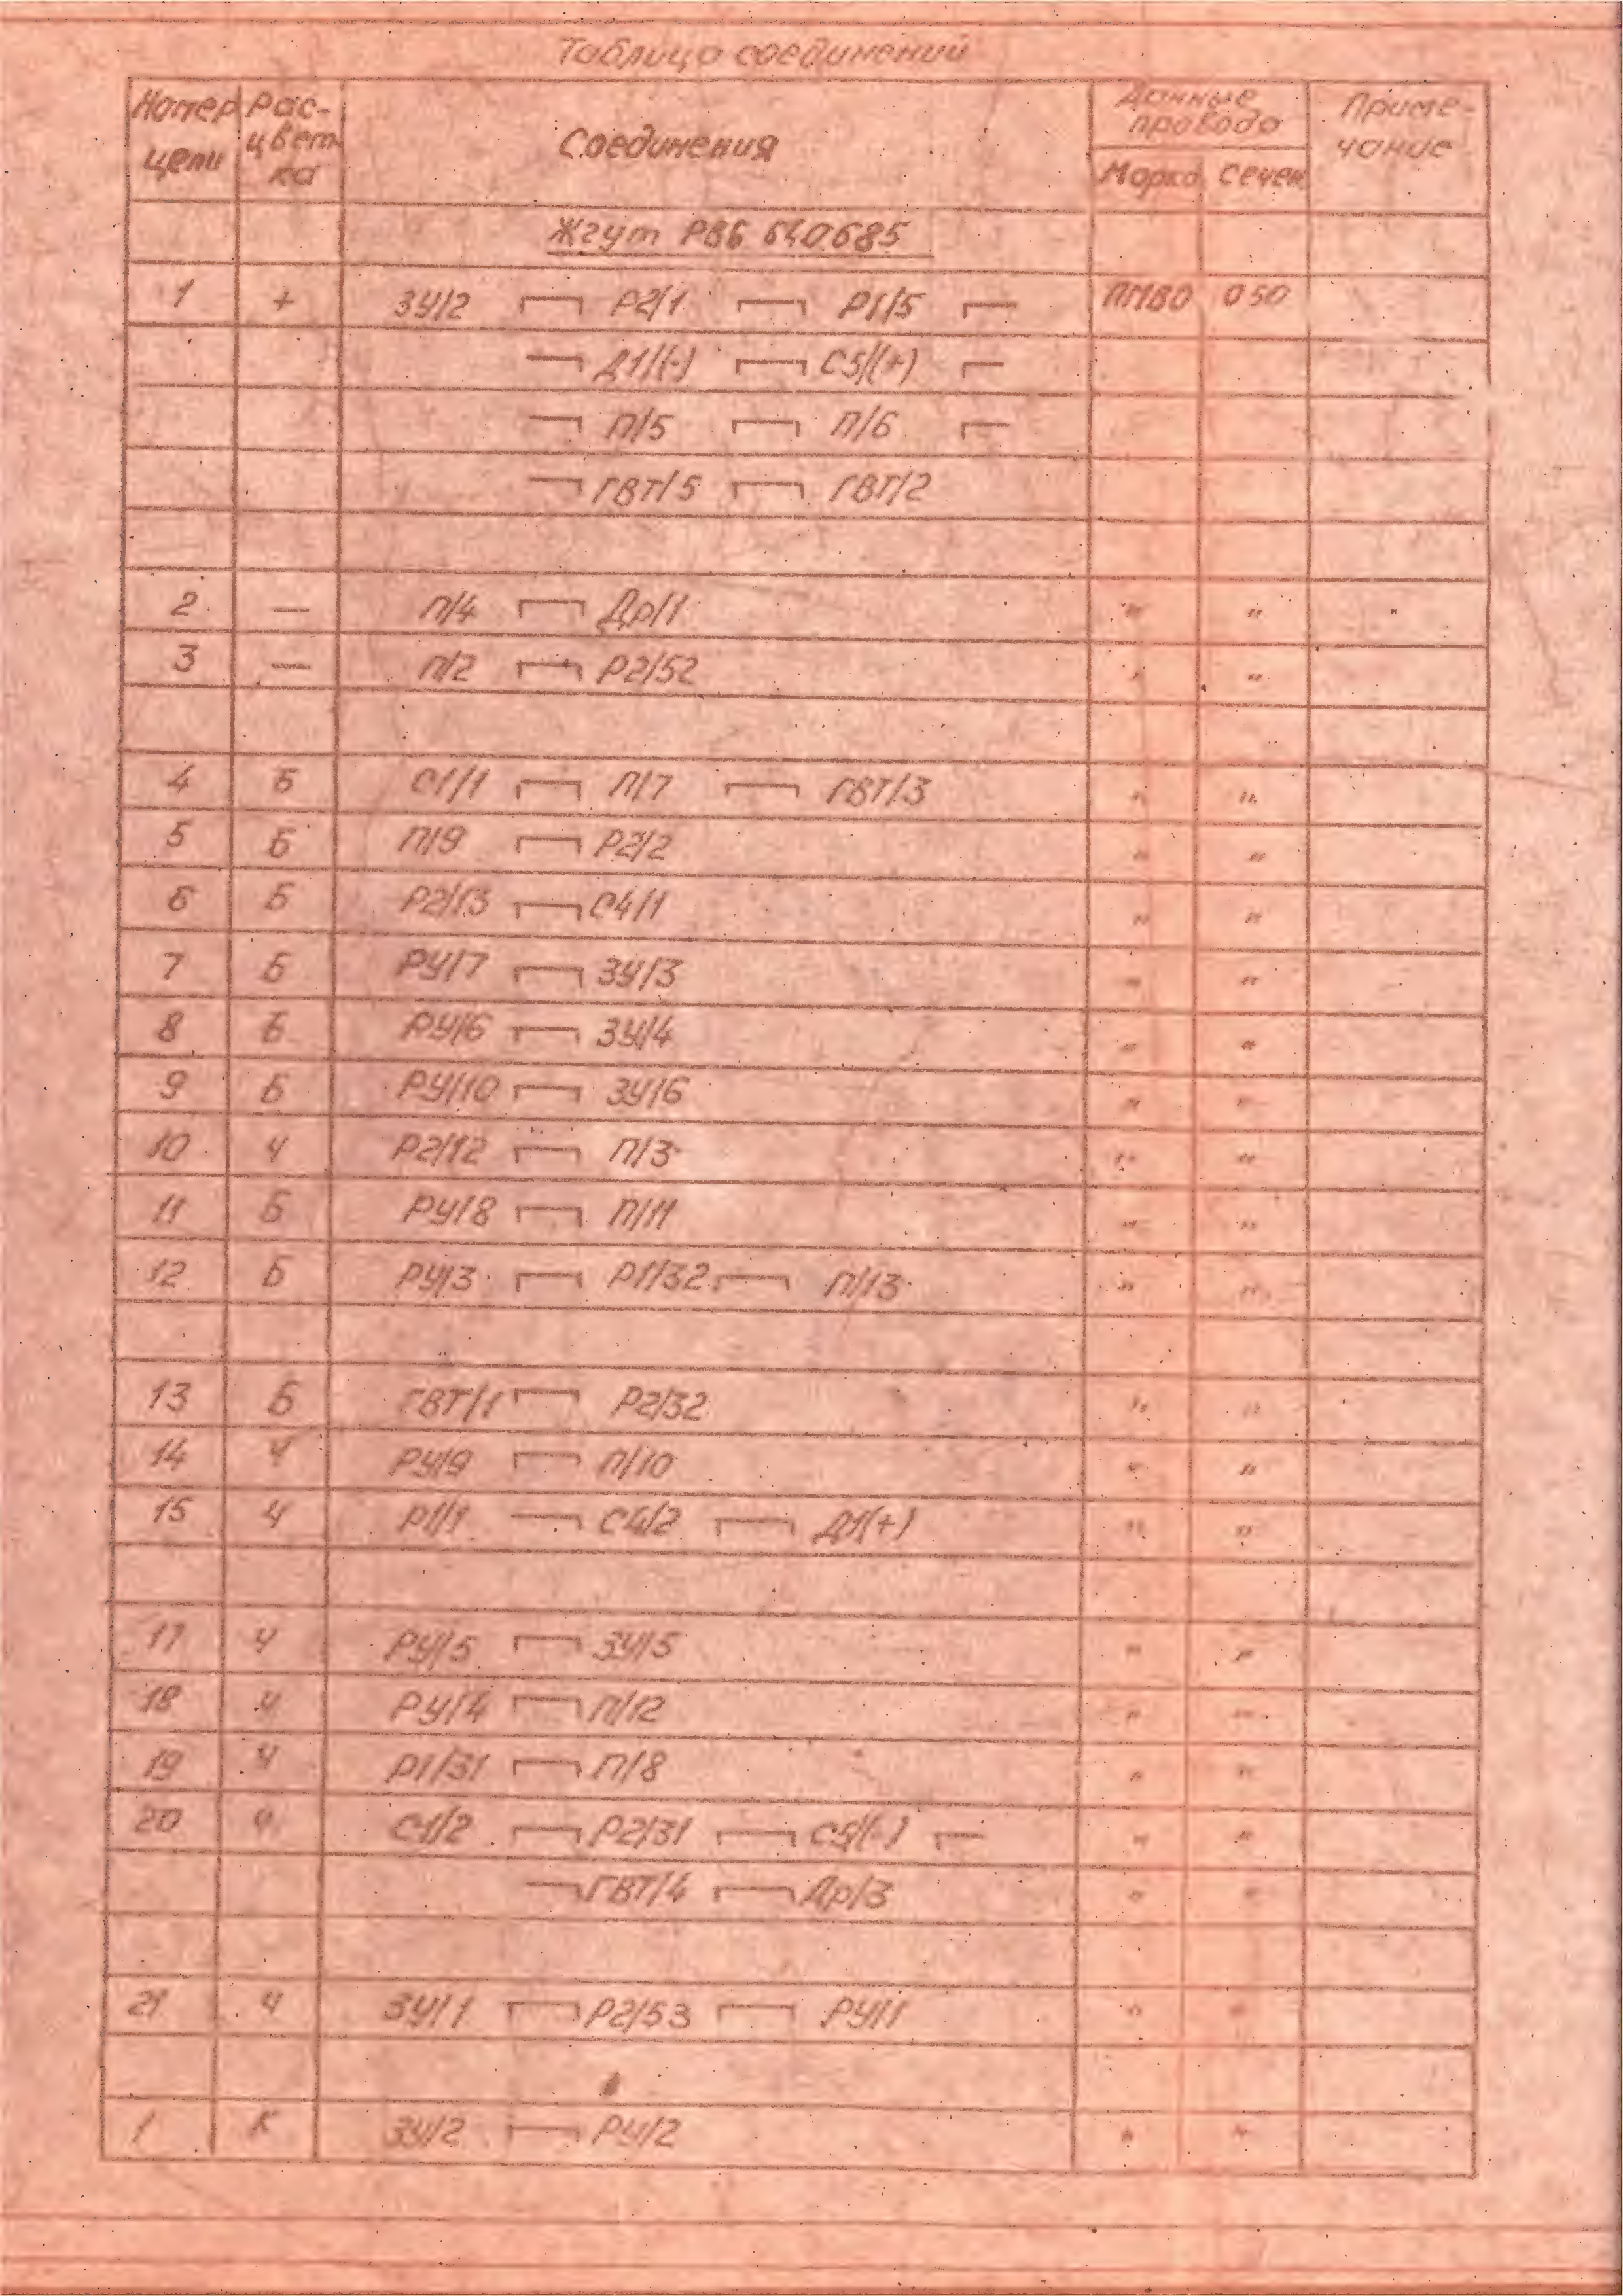 Таблица соединений
Номер цепи Рас-цвет ка Соединения Данные провода Приме-чание
Марка Сечен
Жгут РВ6 640685
1 + ЗУ/2 Р2/1 Р1/5 ПМВО 050
Д1/(-) С5/(+)
П/5 П/6
ГВТ/5 ГВТ/2
2 — П/4 Др/1 " "
3 — П/2 Р2/52 " "
4 Б С1/1 П/7 ГВТ/3 " "
5 Б П/9 Р2/2 " "
6 Б Р2/13 С4/1 " "
7 Б РУ/7 ЗУ/3 " "
8 Б РУ/6 ЗУ/4 " "
9 Б РУ/10 ЗУ/6 " "
10 Ч Р2/12 П/3 " "
11 Б РУ/8 П/11 " "
12 Б РУ/3 Р1/32 П/13 " "
13 Б ГВТ/1 Р2/32 " "
14 Ч РУ/9 П/10 " "
15 Ч Р1/1 С4/2 Д1(+) " "
17 Ч РУ/5 ЗУ/5 " "
18 Ч РУ/4 П/12 " "
19 Ч Р1/31 П/8 " "
20 Ч С1/2 Р2/31 С5/(-) " "
ГВТ/4 Др/3 " "
21 Ч ЗУ/1 Р2/53 РУ/1 " "
1 К ЗУ/2 РУ/2 " "